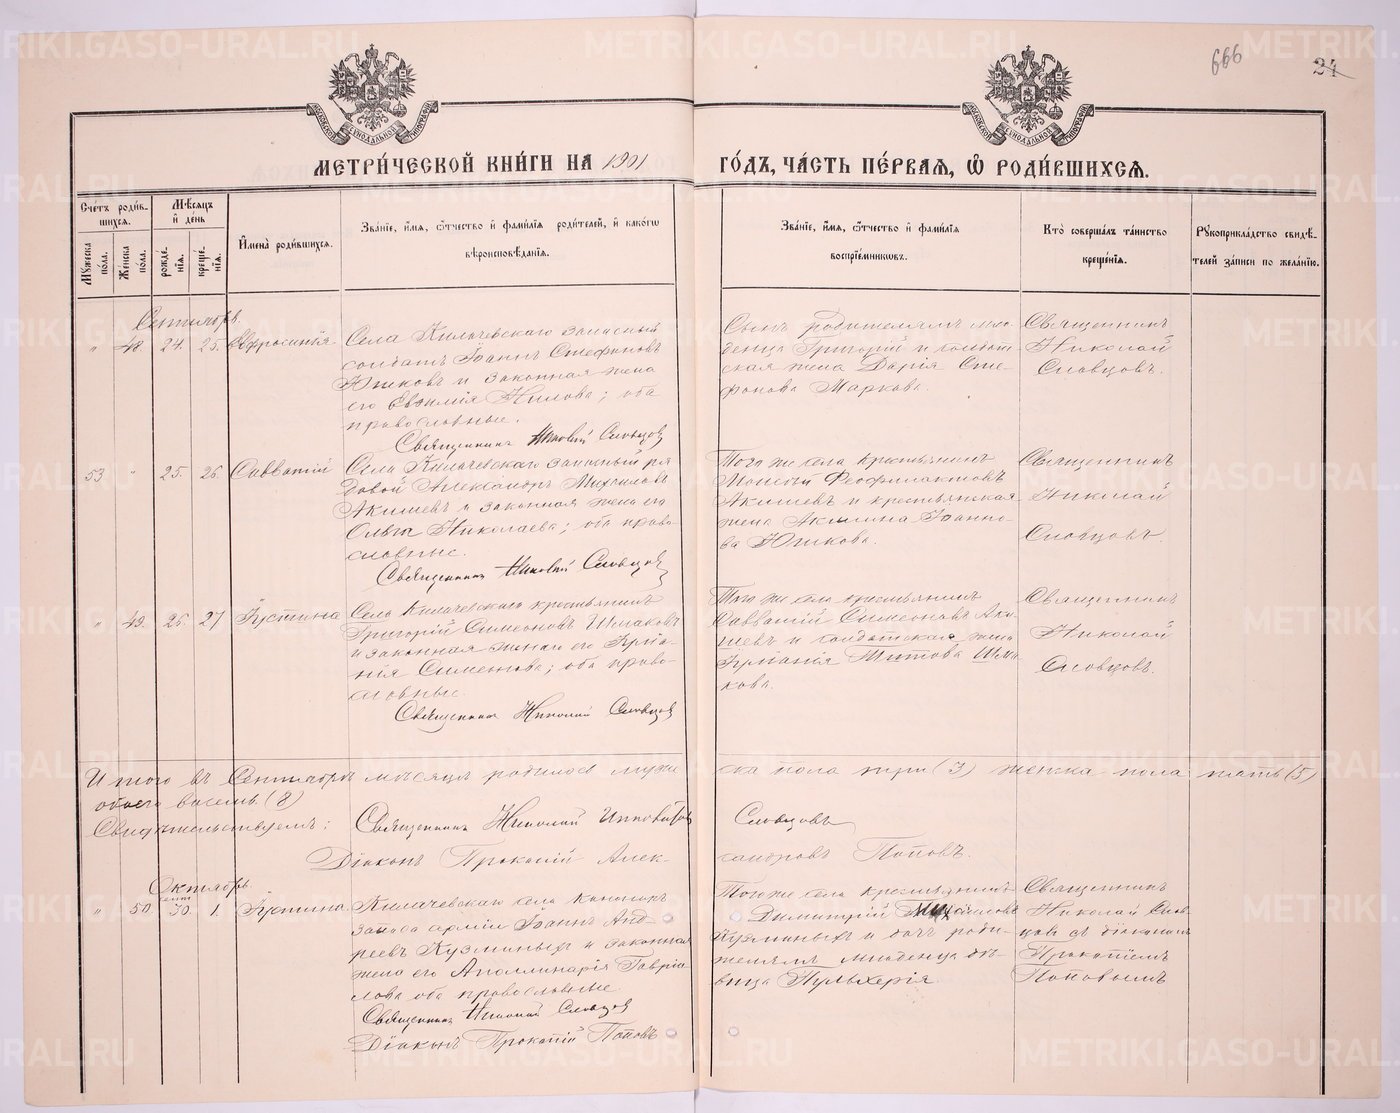 666
24
МЕТРИ́ЧЕСКОЙ КНИ́ГИ НА 1901 ГО́ДЪ, ЧА́СТЬ ПЕ́РВАЯ, Ѽ РОДИ́ВШИХСЯ.
Сче́тъ роди́в-
шихся.
Му́жеска по́ла.
Же́нска по́ла.
Мѣ́сяцъ и де́нь
рожде́-
нія.
креще́-
нія.
Имена̀ роди́вшихся.
Зва́ніе, и́мя, ѻ́тчество и фами́лія роди́телей, и како́гѡ
вѣроисповѣ́данія.
Зва́ніе, и́мя, ѻ́тчество и фами́лія
воспріе́мниковъ.
Кто̀ соверша́лъ та́инство
креще́нія.
Рукоприкла́дство свидѣ́-
телей за́писи по жела́нію.
Сентябрь.
" 48. 24. 25. Евфросинія.
Села Килачевскаго запасный
солдатъ Іоаннъ Стефановъ
Юшковъ и законная жена
его Евѳимія Нилова; оба
православные.
Священникъ Николай Словцов
Сынъ родителямъ мла-
денца Григорій и солдат-
ская жена Дарія Сте-
фанова Маркова.
Священникъ
Николай
Словцовъ.
53 " 25. 26. Савватій
Села Килачевскаго запасный ря
довой Александръ Михаиловъ
Акишевъ и законная жена его
Ольга Николаева; оба право-
славные.
Священникъ Николай Словцов
Того же села крестьянинъ
Моисей Феофилактовъ
Акишевъ и крестьянская
жена Акилина Іоанно-
ва Юшкова.
Священникъ
Николай
Словцовъ.
" 49. 26. 27 Іустина
Села Килачевскаго крестьянинъ
Григорій Симеоновъ Шмаковъ
и законная жена его Іуліа-
нія Симеонова; оба право-
славные.
Священникъ Николай Словцов
Того же села крестьянинъ
Савватій Симеоновъ Аки-
шевъ и солдатская жена
Іуліанія Титова Шма-
кова.
Священникъ
Николай
Словцовъ.
Итого въ Сентябрѣ мѣсяцѣ родилось муже ска пола три (3) женска пола пять (5)
обоего восемь (8)
Свидѣтельствуемъ; Священникъ Николай Ипполитов Словцовъ
Діаконъ Прокопій Алек- сандровъ Поповъ.
Октябрь.
сент
" 50. 30. 1. Іустина
Килачевскаго села канониръ
запаса арміи Іоаннъ Анд-
реевъ Кузминыхъ и законная
жена его Аполлинарія Гаврі-
лова оба православные.
Священникъ Николай Словцов
Діаконъ Прокопій Поповъ
Того же села крестьянинъ
Димитрій Михаиловъ
Кузминыхъ и дочь роди-
телямъ младенца дѣ-
вица Пульхерія
Священникъ
Николай Слов-
цовъ съ діакономъ
Прокопіемъ
Поповымъ
METRIKI.GASO-URAL.RU